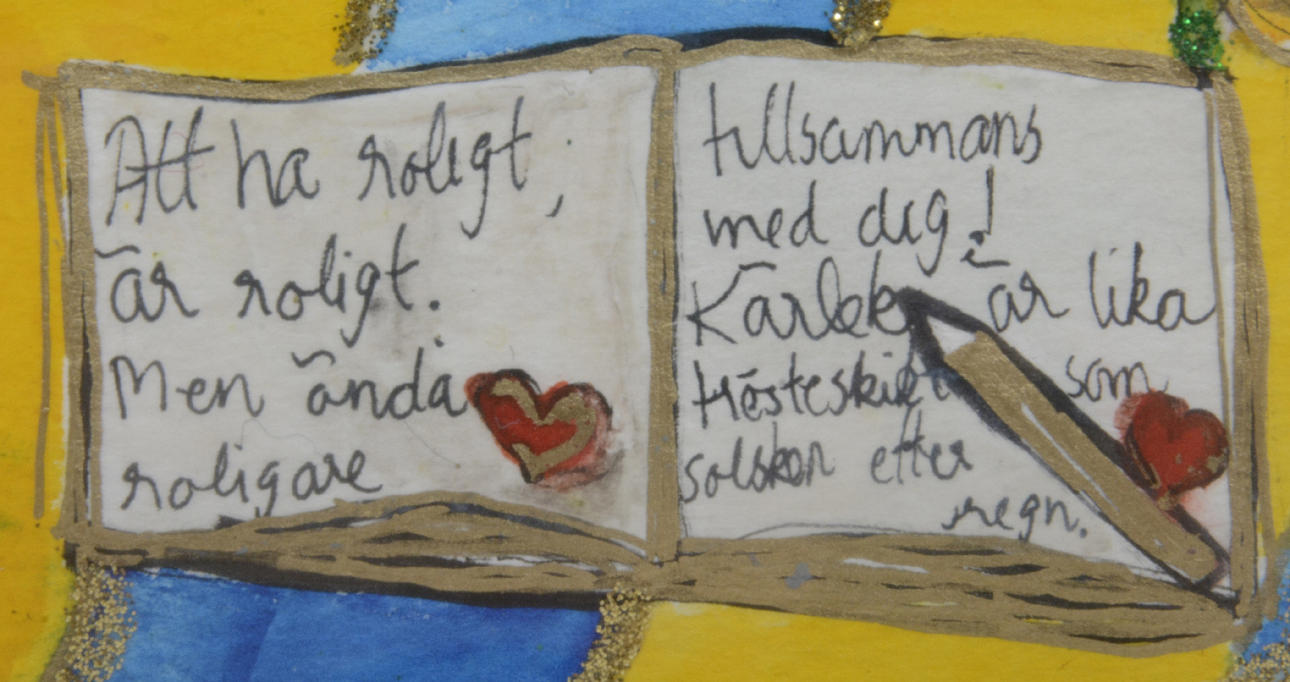 Att ha roligt;
är roligt.
Men ändå
roligare
tillsammans
med dig!
Kärlek är lika
som
solsken efter
regn.